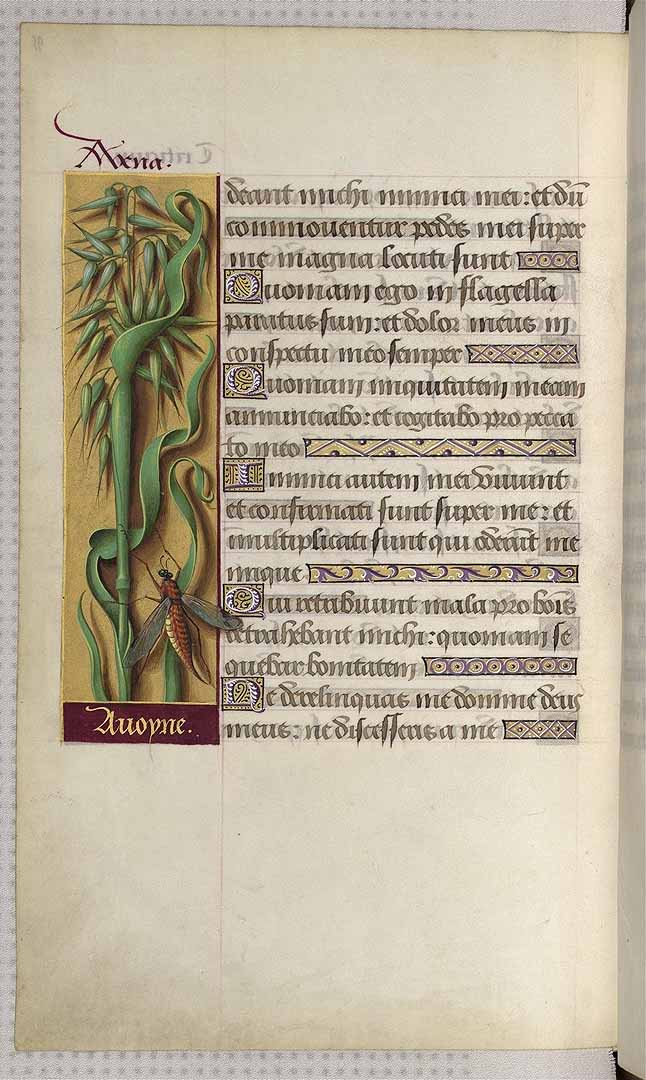 Avena.
deant michi inimici mei: et dū
commoventur pedes mei super
me magna locuti sunt
Quoniam ego in flagella
paratus sum: et dolor meus in
conspectu meo semper
Quoniam iniquitatem meam
annunciabo: et cogitabo pro pecca
to meo
Inimici autem mei vivunt
et confirmati sunt super me: et
multiplicati sunt qui oderūt me
inique
Qui retribuunt mala pro boīs
detrahebant michi: quoniam se
quebar bonitatem
Ne derelinquas me domine deus
meus: ne discesseris a me
Avoyne.